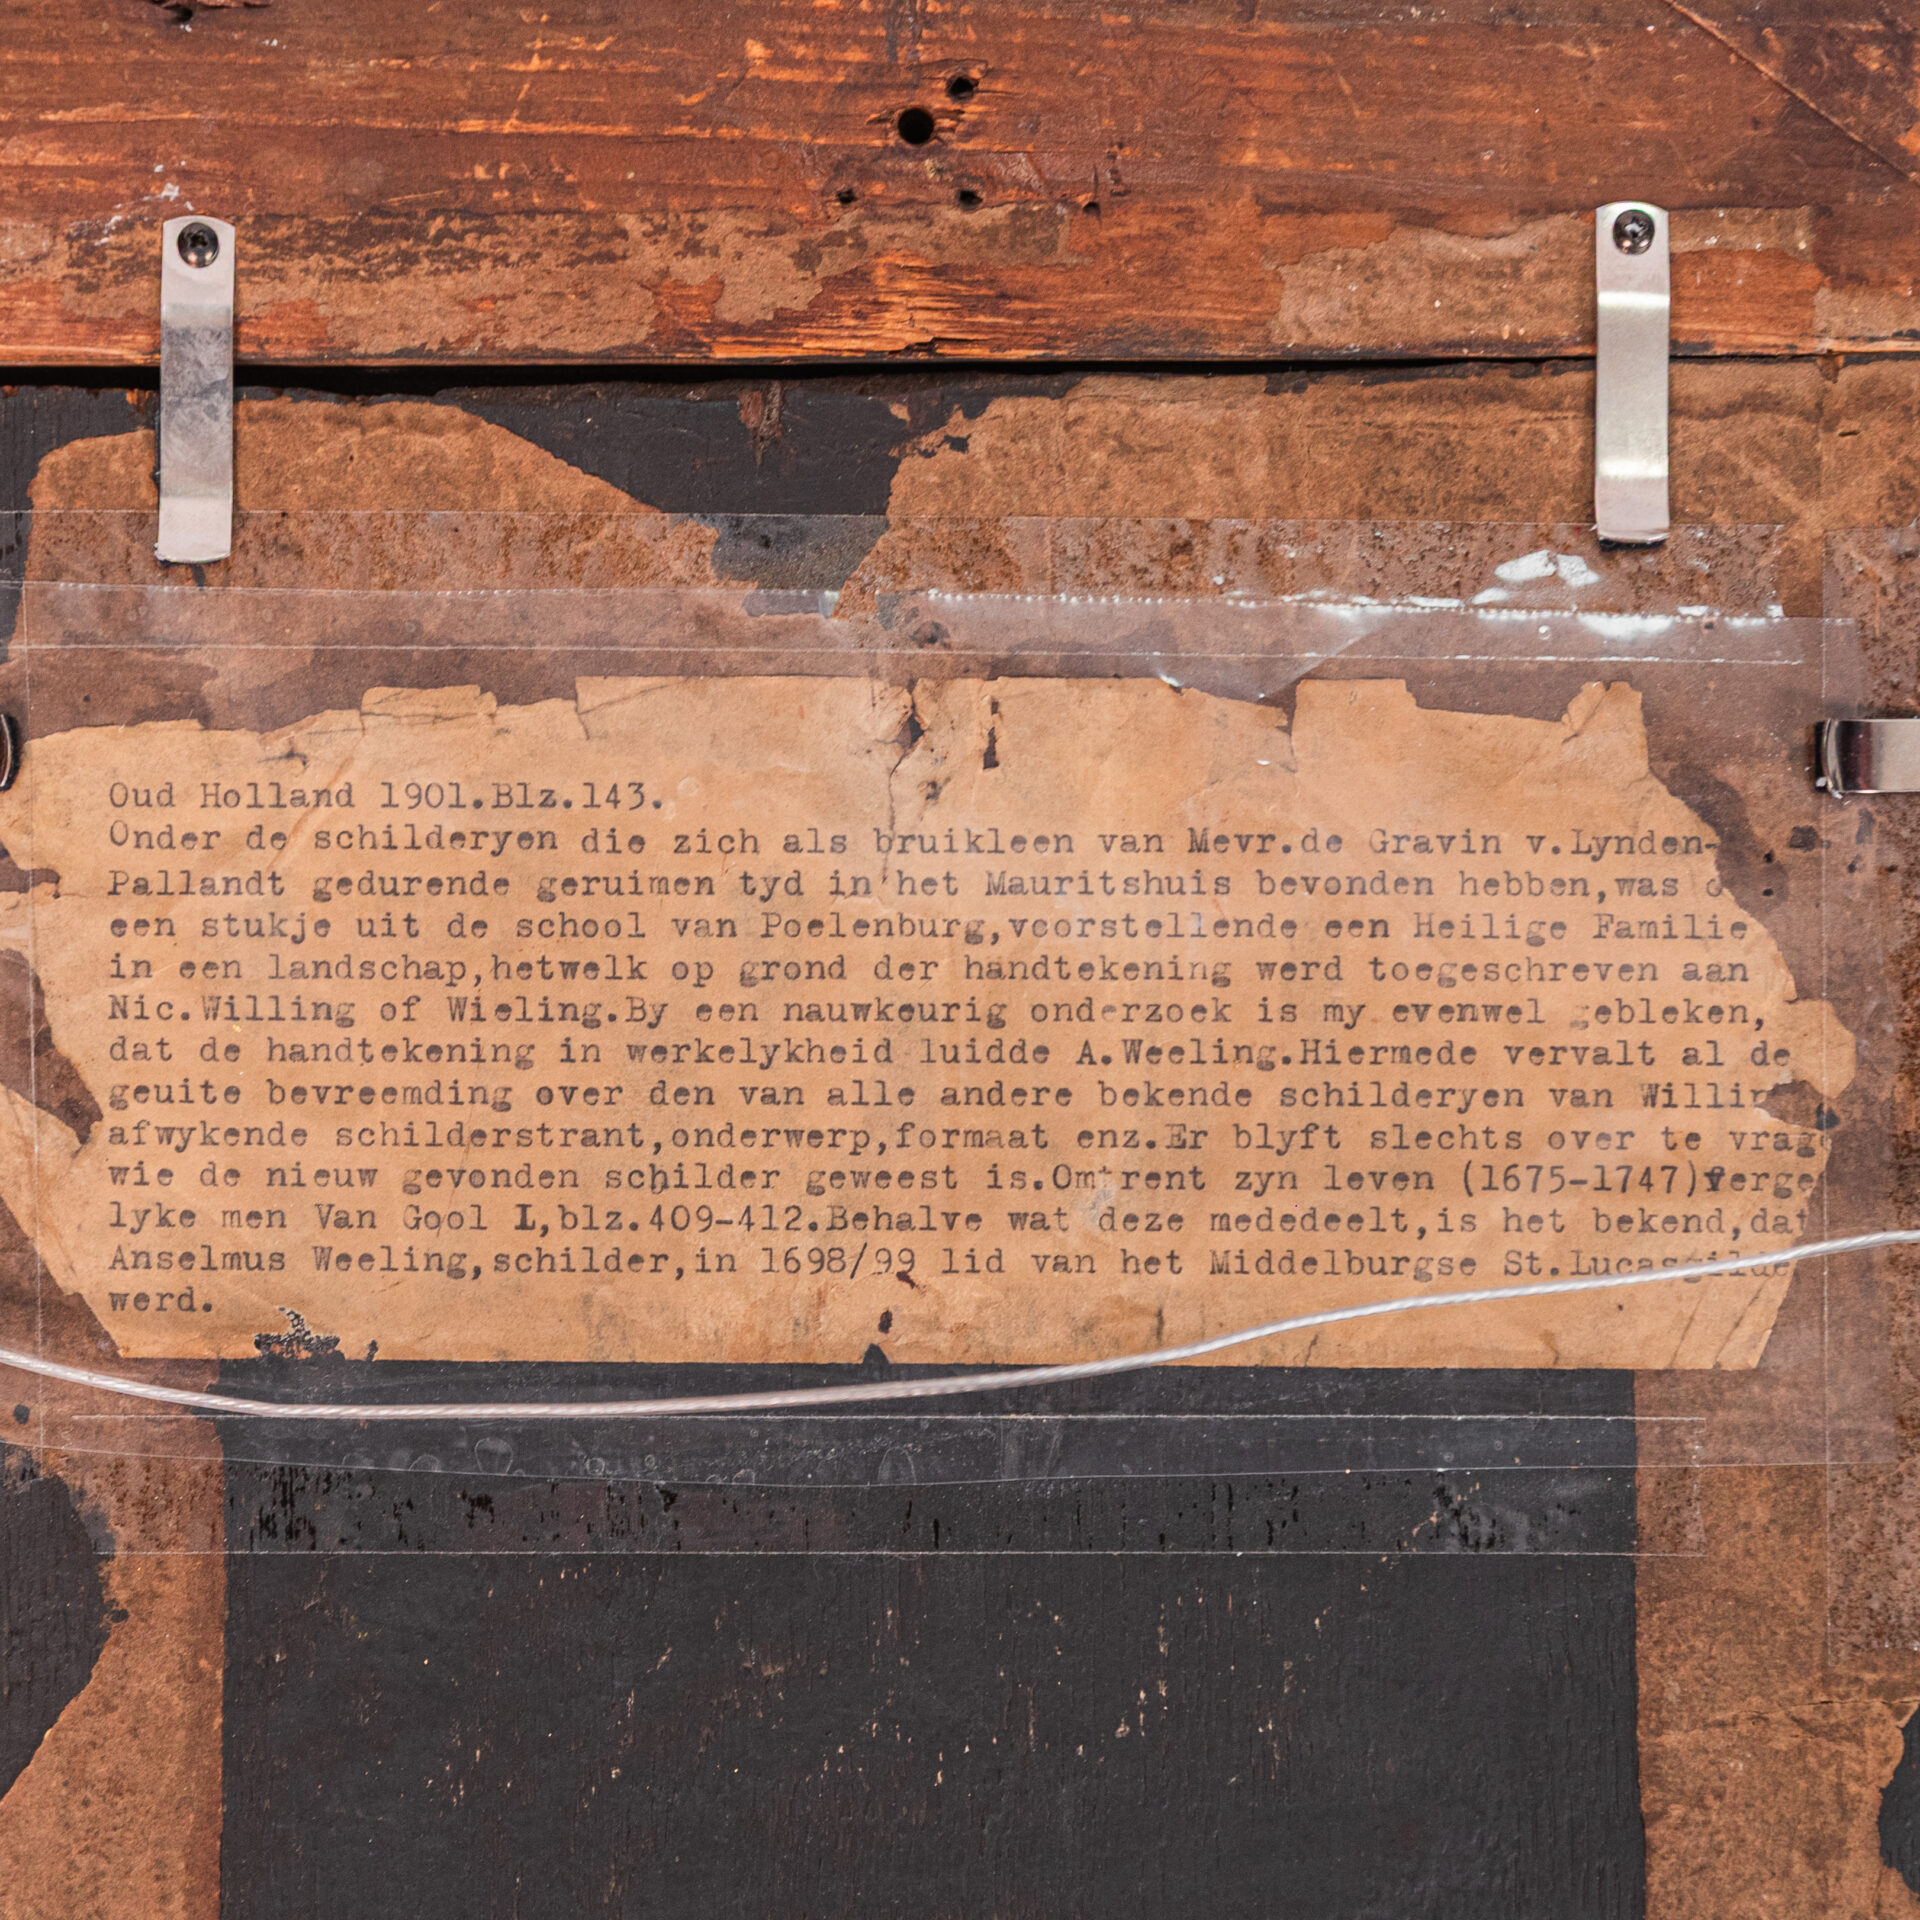 Oud Holland 1901.Blz.143.
Onder de schilderyen die zich als bruikleen van Mevr.de Gravin v.Lynden-
Pallandt gedurende geruimen tyd in het Mauritshuis bevonden hebben,was
een stukje uit de school van Poelenburg,voorstellende een Heilige Familie
in een landschap,hetwelk op grond der handtekening werd toegeschreven aan
Nic.Willing of Wieling.By een nauwkeurig onderzoek is my evenwel gebleken,
dat de handtekening in werkelykheid luidde A.Weeling.Hiermede vervalt al de
geuite bevreemding over den van alle andere bekende schilderyen van Willin
afwykende schilderstrant,onderwerp,formaat enz.Er blyft slechts over te vrage
wie de nieuw gevonden schilder geweest is.Omtrent zyn leven (1675-1747)verge
lyke men Van Gool I,blz.409-412.Behalve wat deze mededeelt,is het bekend,dat
Anselmus Weeling,schilder,in 1698/99 lid van het Middelburgse St.Lucasgilde
werd.